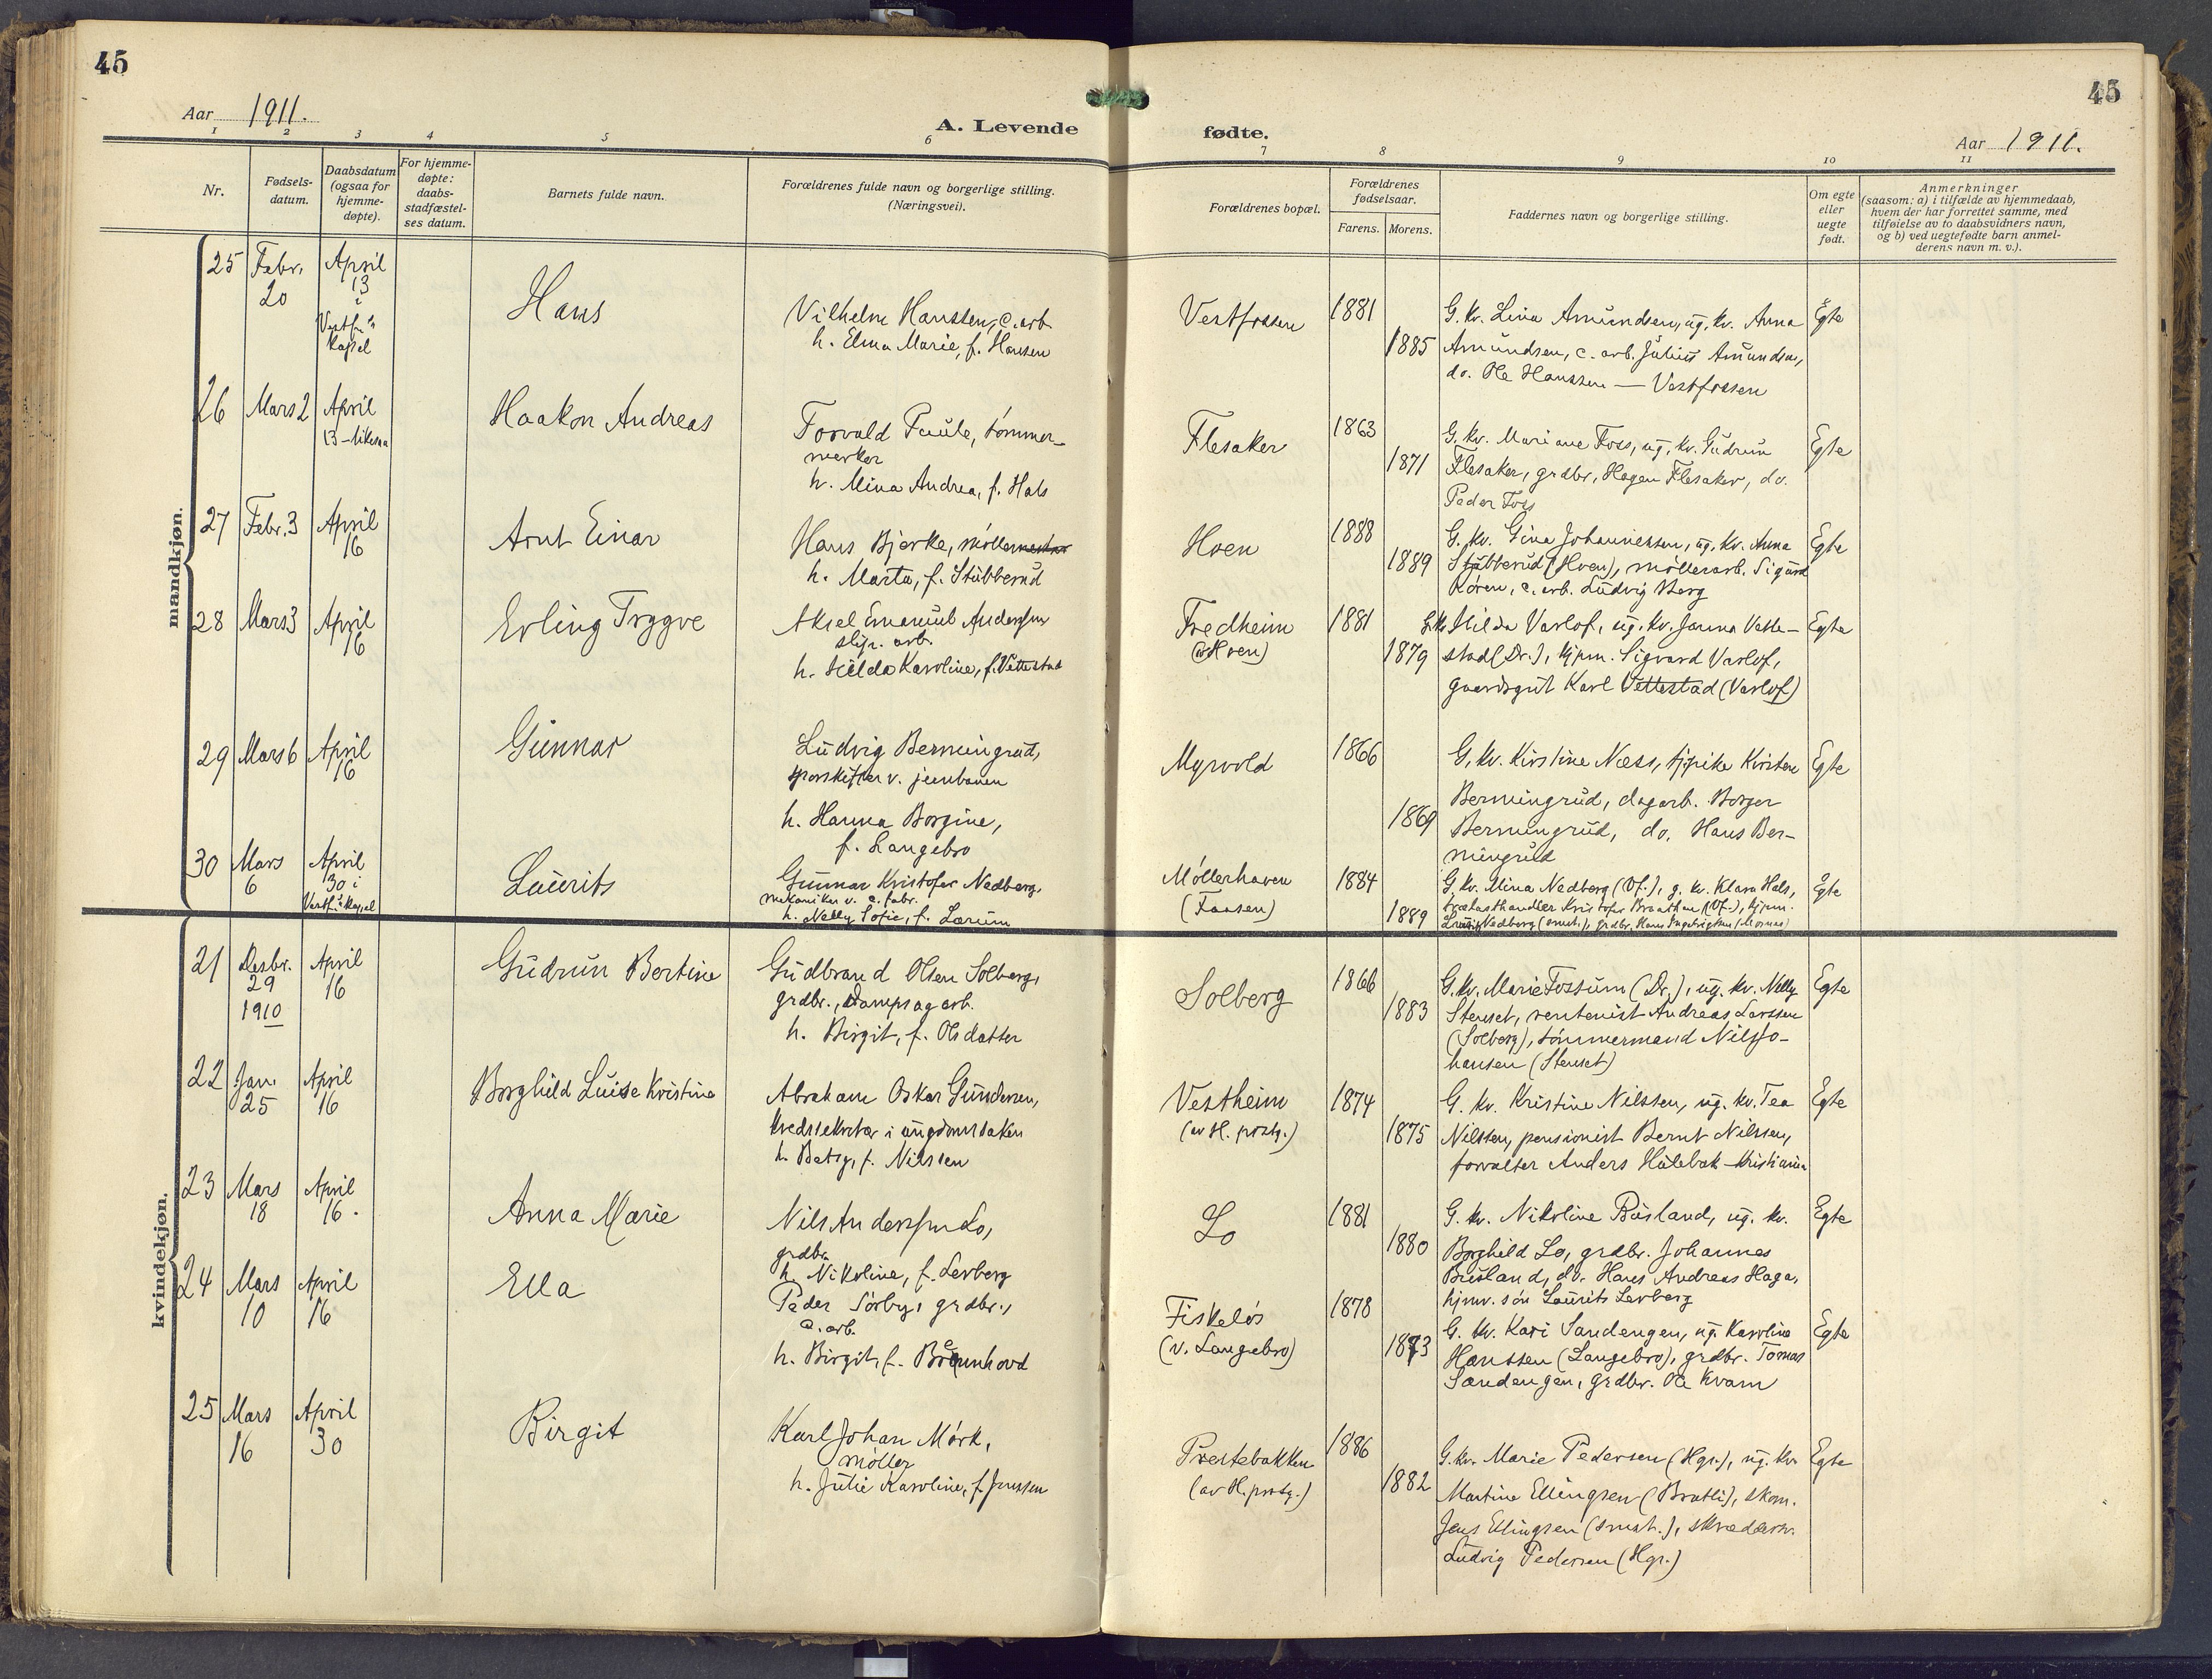 45
Aar 1911.
A. Levende
1 2 3 4 5 6
Nr.
Fødsels-
datum.
Daabsdatum
(ogsaa for
hjemme-
døpte).
For hjemme-
døpte:
daabs-
stadfæstel-
ses datum.
Barnets fulde navn.
Forældrenes fulde navn og borgerlige stilling.
(Næringsvei).
45
fødte.
Aar 1911.
7 8 9 10 11
Forældrenes bopæl.
Forældrenes
fødselsaar.
Farens. Morens.
Faddernes navn og borgerlige stilling.
Om egte
eller
uegte
født.
Anmerkninger
(saasom: a) i tilfælde av hjemmedaab,
hvem der har forrettet samme, med
tilføielse av to daabsvidners navn,
og b) ved uegtefødte barn anmel-
derens navn m. v.).
mandkjøn.
25 Febr. 20
April 13
i
kapel
Hans
Vilhelm Hanssen, c. arb.
h. Elma Marie, f. Hansen
Vestfossen
1881
1885
G. kv. Lina Amundsen, ug. kv. Anna
Amundsen, c. arb. Julius Amundsen,
do. Ole Hanssen — Vestfossen
Egte
26 Mars 2
April
13
Haakon Andreas
Torvald Paule, tømmer-
merker
h. Mina Andrea, f. Hals
Flesaker
1863
1871
G. kv. Mariane Foss, ug. kv. Gudrun
Flesaker, grdbr. Hagen Flesaker, do.
Peder Foss
Egte
27 Febr. 3
April
16
Arnt Einar
Hans Bjerke, møllermester
h. Marta, f. Stubberud
Hoen
1888
1889
G. kv. Gina Johannessen, ug. kv. Anna
Stubberud (Hoen), møllerarb. Sigurd
Køren, c. arb. Ludvig Berg
Egte
28 Mars 3
April
16
Erling Tryggve
Aksel Emanuel Anderssen
slip. arb.
h. Hilda Karoline, f. Vettestad
Fredheim
(Hoen)
1881
1879
G. kv. Hilda Varlof, ug. kv. Janna Vette-
stad (Dr.), kjpm. Sigvard Varlof,
gaardsgut Karl Vettestad (Varlof)
Egte
29 Mars 6
April
16
Gunnar
Ludvig Bermingrud,
sporskifter v. jernbanen
h. Hanna Borgine,
f. Langebro
Myrvold
1866
1869
G. kv. Kirstine Næss, tj.pike Kirstine
Bermingrud, dagarb. Borger
Bermingrud, do. Hans Ber-
mingrud
Egte
30 Mars
6
April
30 i
Laurits
Gunnar Kristofer Nedberg,
mekaniker v. c. fabr.
h. Nelly Sofie, f. Lærum
Møllerhaven
(Faasen)
1884
1889
G. kv. Mina Nedberg (Vf.), g. kv. Klara Hals,
trælasthandler Kristofer Braathen (Vf.), kjpm.
Nedberg (smst.), grdbr. Hans
Egte
kvindekjøn.
21 Desbr.
29
1910
April
16
Gudrun Bertine
Gudbrand Olsen Solberg,
grdbr., dampsagarb.
h. Birgit, f. Olsdatter
Solberg
1866
1883
G. kv. Marie Fossum (Dr.), ug. kv. Nelly
Stenset, rentenist Andreas Larssen
(Solberg), tømmermand Nils Jo-
hansen (Stenset)
Egte
22 Jan.
25
April
16
Borghild Luise Kristine
Abraham Oskar Gundersen,
kredssekretær i ungdomssaken
h. Betsy, f. Nilssen
Vestheim
(av H. prestg.)
1874
1875
G. kv. Kristine Nilssen, ug. kv. Tea
Nilssen, pensionist Bernt Nilssen,
forvalter Anders Hulebak - Kristiania
Egte
23 Mars
18
April
16.
Anna Marie
Nils Anderssen Lo,
grdbr.
h. Nikoline, f. Lerberg
Lo
1881
1880
G. kv. Nikoline Busland, ug. kv.
Borghild Lo, grdbr. Johannes
Busland, do. Hans Andreas Haga,
hjmv. søn Laurits Lerberg
Egte
24 Mars
10
April
16
Ella
Peder Sørby, grdbr.,
c. arb.
h. Birgit, f.
Fiskeløs
(v. Langebro)
1878
1873
G. kv. Kari Sandengen, ug. Karoline
Hanssen (Langebro), grdbr. Tomas
Sandengen, grdbr. Ole Kvam
Egte
25 Mars
16
April
30
Birgit
Karl Johan Mørk,
møller
h. Julie Karoline, f. Jenssen
Prestebakken
(av H. prestg.)
1886
1882
G. kv. Marie Pedersen (Hgs.), ug. kv.
Martine Ellingsen (Bratli), skom.
Jens Ellingsen (smst.), skrædersv.
Ludvig Pedersen (Hgs.)
Egte